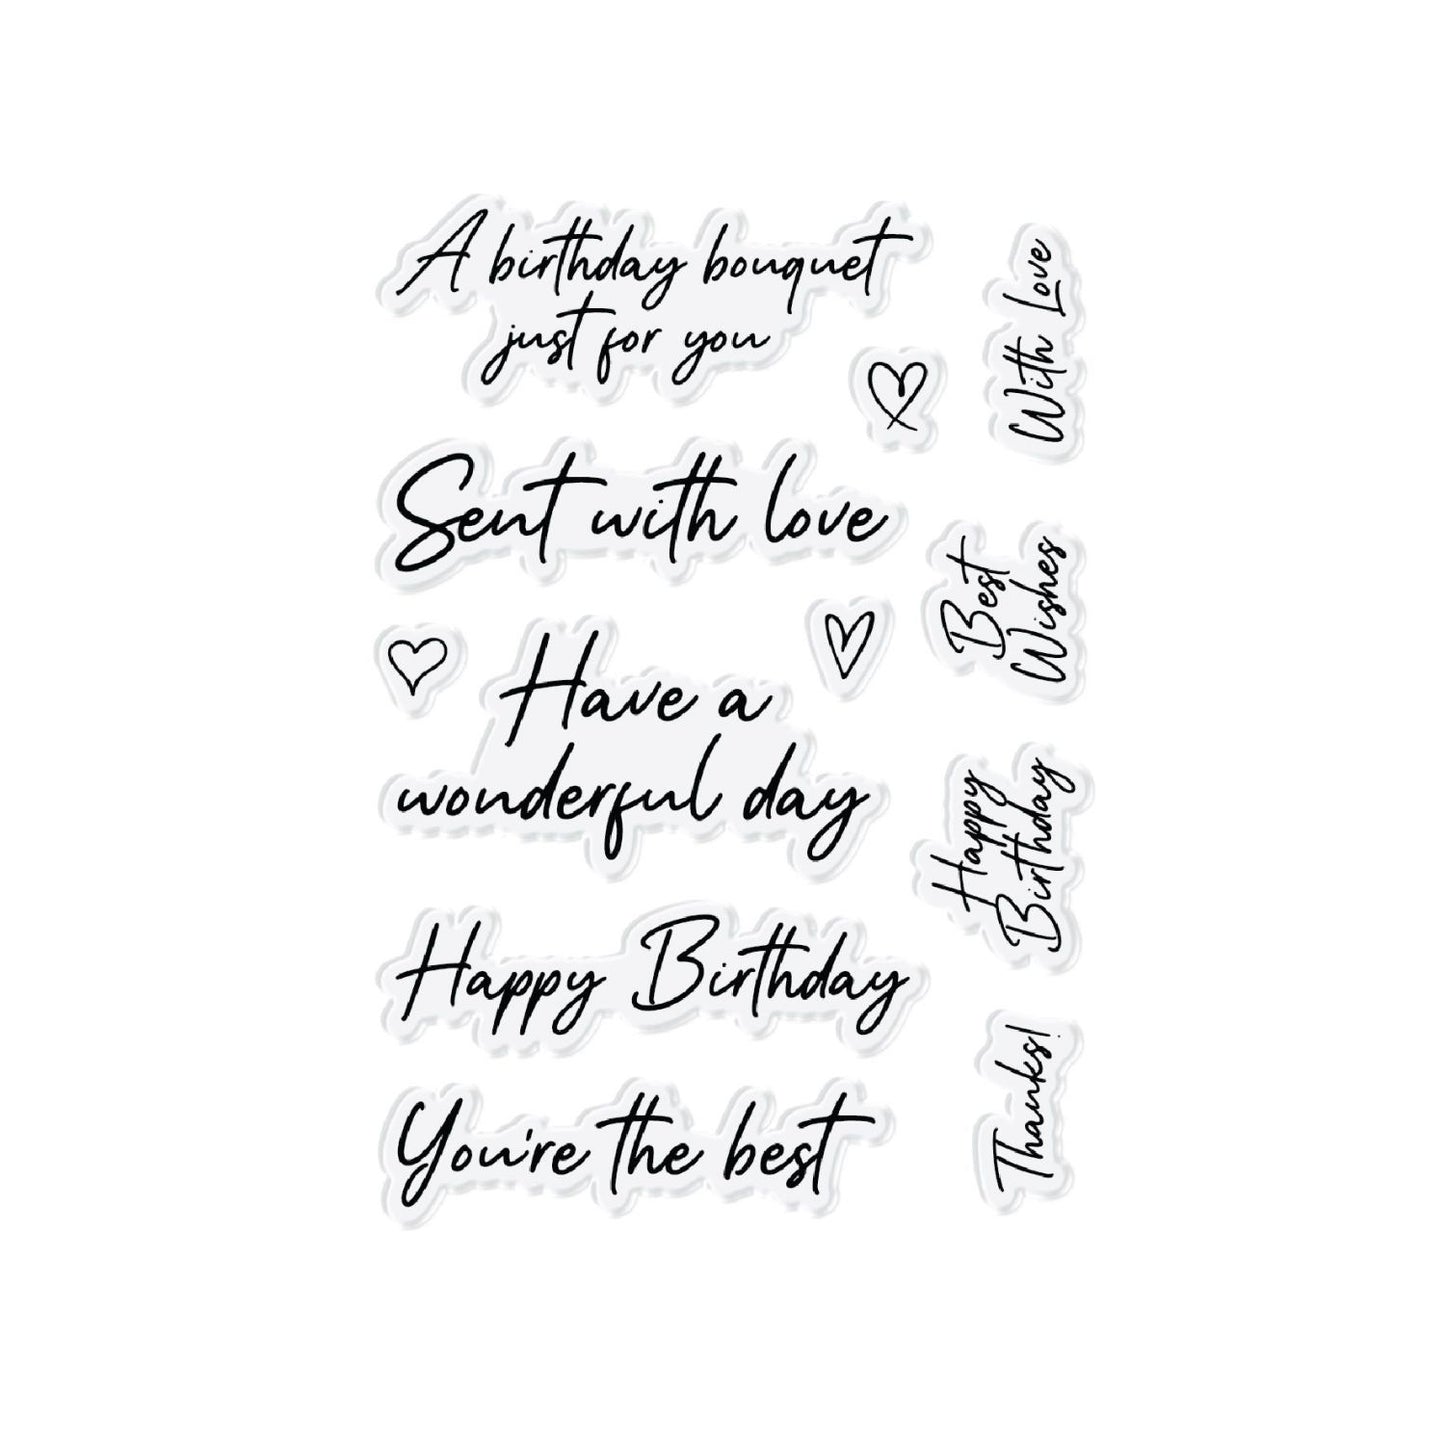 A birthday bouquet
just for you
Sent with love
Have a
wonderful day
Happy Birthday
You're the best
With Love
Best
Wishes
Happy
Birthday
Thanks!